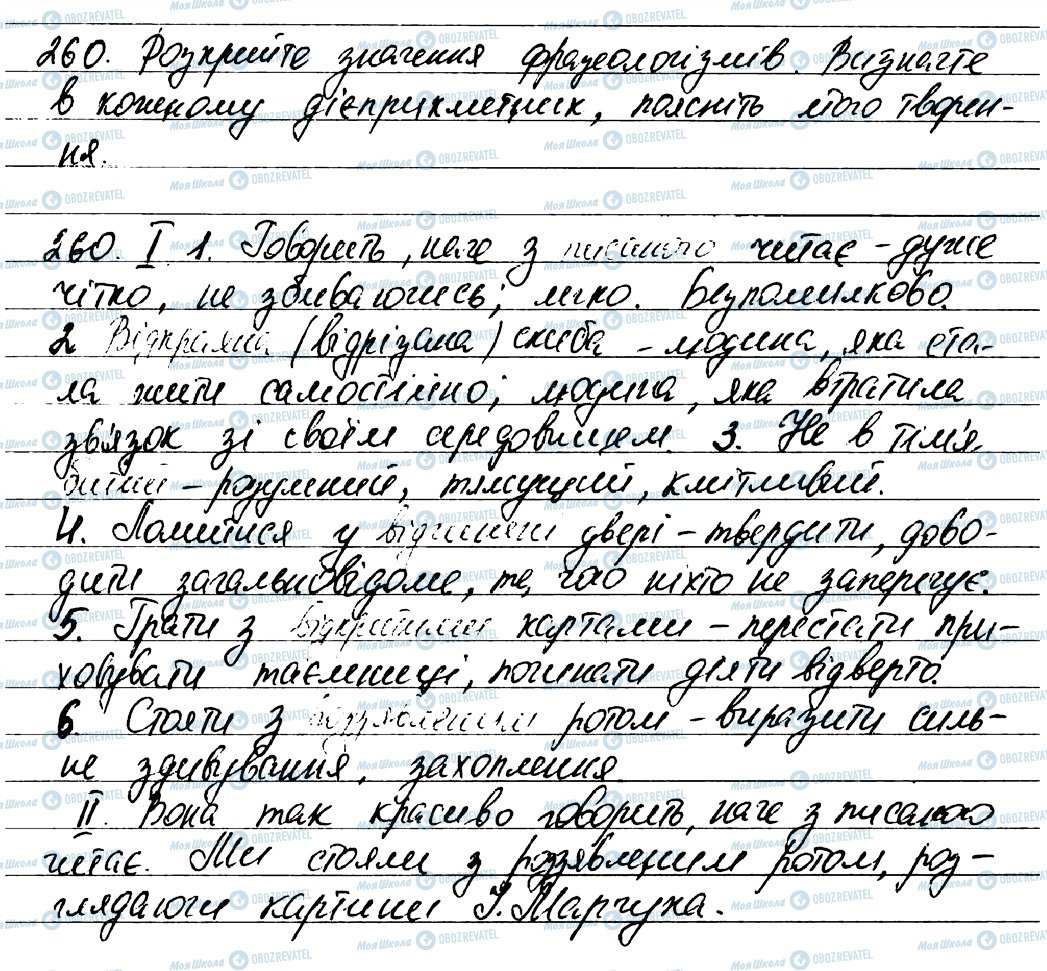 260. Розкрийте значення фразеологізмів. Визначте
в кожному дієприкметник, поясніть його творен-
ня.
260. I 1. Говорить, наче з писаного читає – дуже
чітко, не збиваючись; легко. Безпомилково.
2 Відкраяна (відрізана) скиба – людина, яка ста-
ла жити самостійно; людина, яка втратила
зв'язок зі своїм середовищем. 3. Не в тім'я
битий – розумний, тямущий, кмітливий.
4. Ломитися у відчинені двері – твердити, дово-
дити загальновідоме, те, що ніхто не заперечує.
5. Грати з відкритими картами – перестати при-
ховувати таємниці, починати діяти відверто.
6. Стояти з роззявленим ротом – виразити силь-
не здивування, захоплення.
II. Вона так красиво говорить, наче з писаного
читає. Ми стояли з роззявленим ротом, роз-
глядаючи картини І. Марчука.